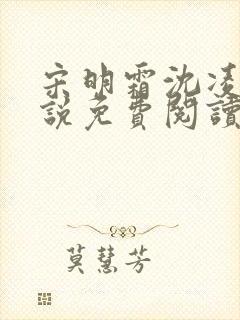 宋明霜沈凌
說免費閱讀
莫慧芳